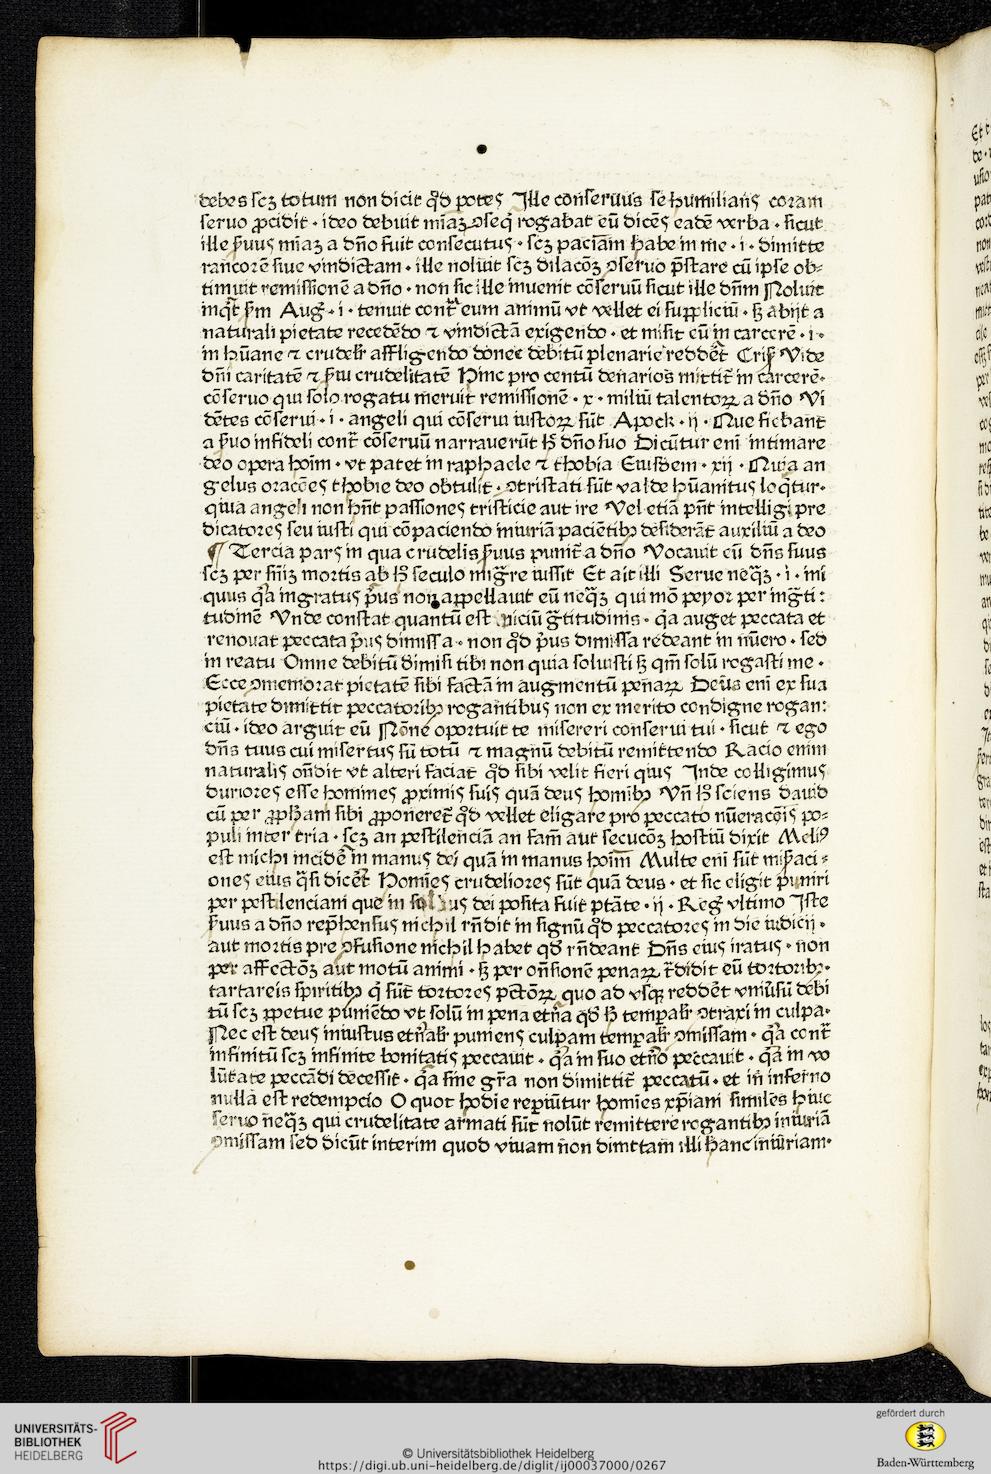 debes scꝫ totum non dicit qd̕ potes Ille conseruus se humilians coram
seruo ꝓcidit · ideo debuit mīaꝫ ↄseqͥ rogabat eū dicēs eadē verba · sicut
ille ẜuus mīaꝫ a dn̄o fuit consecutus · scꝫ paciam̄ habe in me · i · dimitte
rancorē siue vindictam · ille noluit scꝫ dilacōꝫ ↄseruo p̄stare cū ipse ob⸗
tinuit remissionē a dn̄o · non sic ille inuenit cōseruū sicut ille dn̄m Noluit
inqͭ ẜm Aug̕ · i · tenuit contͣ eum animū vt vellet ei suppliciū · sꝫ abijt a
naturali pietate recedēdo ⁊ vindictā exigendo · et misit eū in carcerē · i ·
in hūane ⁊ crudelr̕ affligendo donec debitū plenarie reddēt Cris̕ Vide
dn̄i caritatē ⁊ ẜui crudelitatē Hinc pro centū denarios mittit̕ in carcerē ·
cōseruo qui solo rogatu meruit remissionē · x · miliū talentoꝝ a dn̄o Vi
dētes cōserui · i · angeli qui cōserui iustoꝝ sūt Apock · ij · Que fiebant
a ẜuo infideli contͣ cōseruū narrauerūt hͦ dn̄o suo Dicūtur enī intimare
deo opera hoīm · vt patet in raphaele ⁊ thobia Eiusdem · xij · Quia an
gelus oracōes thobie deo obtulit · ↄtristati sūt valde hūanitus loqͥtur ·
quia angeli non hn̄t passiones tristicie aut ire Vel etiā pn̄t intelligi pre
dicatores seu iusti qui cōpaciendo iniuriā pacientibꝫ desiderāt auxiliū a deo
¶ Tercia pars in qua crudelis ẜuus punit̕ a dn̄o Vocauit eū dn̄s suus
scꝫ per sn̄iꝫ mortis ab hͦ seculo migͣre iussit Et ait illi Serue neqͣꝫ · i · ini
quus qͥa ingratus pͥus non appellauit eū neqͣꝫ qui mō peyor per ingͣti :
tudinē Vnde constat quantū est viciū gͣtitudinis · qͥa auget peccata et
renouat peccata pͥus dimissa · non qd̕ pͥus dimissa redeant in nūero · sed
in reatu Omne debitū dimisi tibi non quia soluisti sꝫ qm̄ solū rogasti me ·
Ecce ↄmemorat pietatē sibi factā in augmentū penaꝝ Deus enī ex sua
pietate dimittit peccatoribꝫ rogantibus non ex merito condigne rogan:
ciū · ideo arguit eū Nōne oportuit te misereri conserui tui · sicut ⁊ ego
dn̄s tuus cui misertus sū totū ⁊ magnū debitū remittendo Racio enim
naturalis on̄dit vt alteri faciat qd̕ sibi velit fieri qͥuis Inde colligimus
duriores esse homines ꝓximis suis quā deus hoībꝫ Vn̄ hͦ sciens dauid
cū per ꝓph̄am sibi ꝓponeret̕ qd̕ vellet eligare pro peccato nūeracōis po⸗
puli inter tria · scꝫ an pestilenciā an fam̄ aut secucōꝫ hostiū dixit Meliꝰ
est michi incidē in manus dei quā in manus hoīm Multe enī sūt mis̕aci⸗
ones eius qͣsi dicēt Homīes crudeliores sūt quā deus · et sic eligit puniri
per pestilenciam que in solius dei posita fuit ptāte · ij · Reg̕ vltimo Iste
ẜuus a dn̄o repͥhensus nichil rn̄dit in signū qd̕ peccatores in die iudicij ·
aut mortis pre ↄfusione nichil habet qd̕ rn̄deant Dn̄s eius iratus · non
per affectōꝫ aut motū animi · sꝫ per on̄sionē penaꝝ tͣdidit eū tortoribꝫ ·
tartareis spiritibꝫ qͥ sūt tortores pctōꝝ quo ad vsqꝫ reddēt vniūsū debi
tū scꝫ ꝑpetue puniēdo vt solū in pena etn̄a qd̕ hͦ temꝑalr̕ ↄtraxi in culpa ·
Nec est deus iniustus etn̄alr̕ puniens culpam temꝑalr̕ ↄmissam · qͥa contͣ
infinitū scꝫ infinite bonitatis peccauit · qͥa in suo etn̄o peccauit · qͥa in vo
lūtate peccādi decessit · qͥa sine gr̄a non dimittit̕ peccatū · et in inferno
nulla est redempcio O quot hodie reperiūtur homīes xp̄iani similes huic
seruo neqͣꝫ qui crudelitate armati sūt nolūt remittere rogantibꝫ iniuriā
ↄmissam sed dicūt interim quod viuam non dimittam illi hanc iniūriam ·
UNIVERSITÄTS-
BIBLIOTHEK
HEIDELBERG
© Universitätsbibliothek Heidelberg
https://digi.ub.uni-heidelberg.de/diglit/ij00037000/0267
gefördert durch
Baden-Württemberg